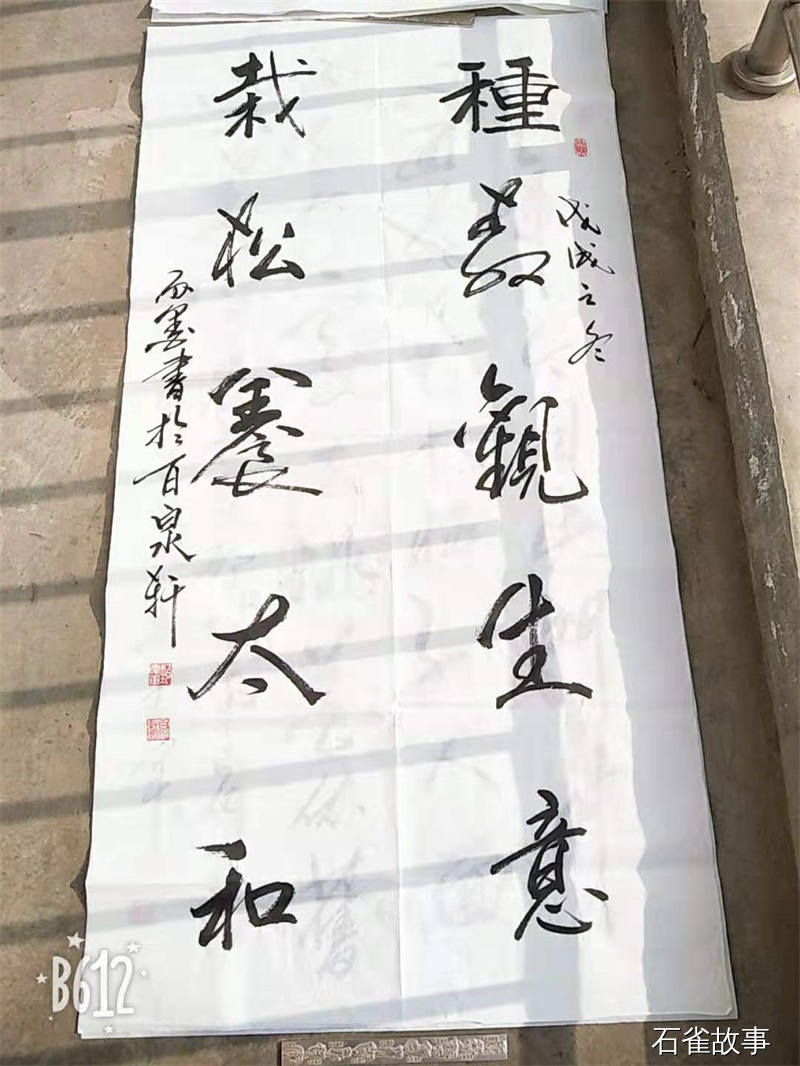 種觀生意
戊戌之冬
栽松養太和
墨書於百泉軒
B612
石雀故事